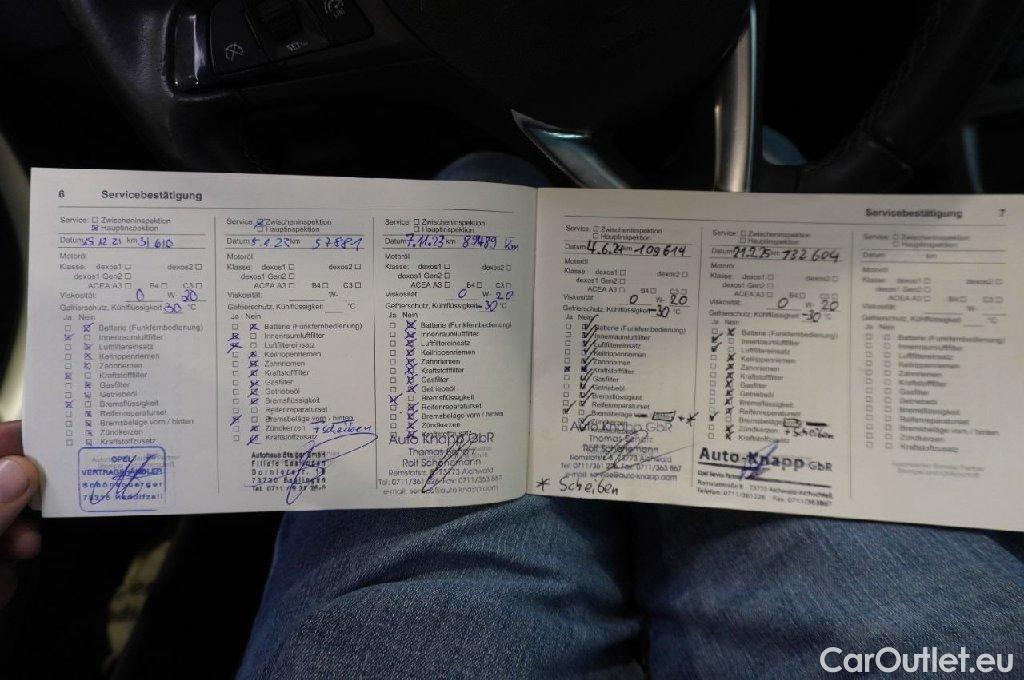 SET/-
LIM
6 Servicebestätigung
Service: Zwischeninspektion
Hauptinspektion
Datum 15 12 21 km 31 610
Motoröl
Klasse: dexos1 dexos2
dexos1 Gen2
ACEA A3 B4 C3
Viskosität 0 W- 20
Gefrierschutz, Kühlflüssigkeit -30 °C
Ja Nein
Batterie (Funkfernbedienung)
Innenraumluftfilter
Luftfiltereinsatz
Keilrippenriemen
Zahnriemen
Kraftstofffilter
Gasfilter
Getriebeöl
Bremsflüssigkeit
Reifenreparaturset
Bremsbeläge vorn / hinten
Zündkerzen
Kraftstoffzusatz
OPEL
VERTRAGSHÄNDLER
Service: Zwischeninspektion
Hauptinspektion
Datum 5.1.23 km 57881
Motoröl
Klasse: dexos1 dexos2
dexos1 Gen2
ACEA A3 B4 C3
Viskosität W-
Gefrierschutz, Kühlflüssigkeit °C
Ja Nein
Batterie (Funkfernbedienung)
Innenraumluftfilter
Luftfiltereinsatz
Keilrippenriemen
Zahnriemen
Kraftstofffilter
Gasfilter
Getriebeöl
Bremsflüssigkeit
Reifenreparaturset
Bremsbeläge vorn / hinten
Zündkerzen + Scheiben
Kraftstoffzusatz
Autohaus Staiger GmbH
Filiale Esslingen
Dornierstr.
73730 Esslingen
Service: Zwischeninspektion
Hauptinspektion
Datum 7.11.23 km 89489 km
Motoröl
Klasse: dexos1 dexos2
dexos1 Gen2
ACEA A3 B4 C3
Viskosität 0 W- 20
Gefrierschutz, Kühlflüssigkeit -30 °C
Ja Nein
Batterie (Funkfernbedienung)
Innenraumluftfilter
Luftfiltereinsatz
Keilrippenriemen
Zahnriemen
Kraftstofffilter
Gasfilter
Getriebeöl
Bremsflüssigkeit
Reifenreparaturset
Bremsbeläge vorn / hinten
Zündkerzen
Auto Knapp GbR
Thomas Scholz
Rolf Schönemann
Romstalstr. 8 73773 Aichwald
Tel: 0711/361226 Fax: 0711/363 867
e-mail: service@auto-knapp.com
Servicebestätigung 7
Service: Zwischeninspektion
Hauptinspektion
Datum 4.6.24 km 109614
Motoröl
Klasse: dexos1 dexos2
dexos1 Gen2
ACEA A3 B4 C3
Viskosität 0 W- 20
Gefrierschutz, Kühlflüssigkeit -30 °C
Ja Nein
Batterie (Funkfernbedienung)
Innenraumluftfilter
Luftfiltereinsatz
Keilrippenriemen
Zahnriemen
Kraftstofffilter
Gasfilter
Getriebeöl
Bremsflüssigkeit
Reifenreparaturset
Bremsbeläge vorn *
Auto Knapp GbR
Thomas Scholz
Rolf Schönemann
* Scheiben
Service: Zwischeninspektion
Hauptinspektion
Datum 21.2.25 km 132 604
Motoröl
Klasse: dexos1 dexos2
dexos1 Gen2
ACEA A3 B4 C3
Viskosität 0 W- 20
Gefrierschutz, Kühlflüssigkeit -30 °C
Ja Nein
Batterie (Funkfernbedienung)
Innenraumluftfilter
Luftfiltereinsatz
Keilrippenriemen
Zahnriemen
Kraftstofffilter
Gasfilter
Getriebeöl
Bremsflüssigkeit
Reifenreparaturset
Bremsbeläge vorn
Zündkerzen + Scheiben
Kraftstoffzusatz
Auto-Knapp GbR
Opel Service Partner
Service: Zwischeninspektion
Hauptinspektion
Datum km
Motoröl
Klasse: dexos1 dexos2
dexos1 Gen2
ACEA A3 B4 C3
Viskosität W-
Gefrierschutz, Kühlflüssigkeit °C
Ja Nein
Batterie (Funkfernbedienung)
Innenraumluftfilter
Luftfiltereinsatz
Keilrippenriemen
Zahnriemen
Kraftstofffilter
Gasfilter
Getriebeöl
Bremsflüssigkeit
Reifenreparaturset
Bremsbeläge vorn / hinten
Zündkerzen
Kraftstoffzusatz
CarOutlet.eu